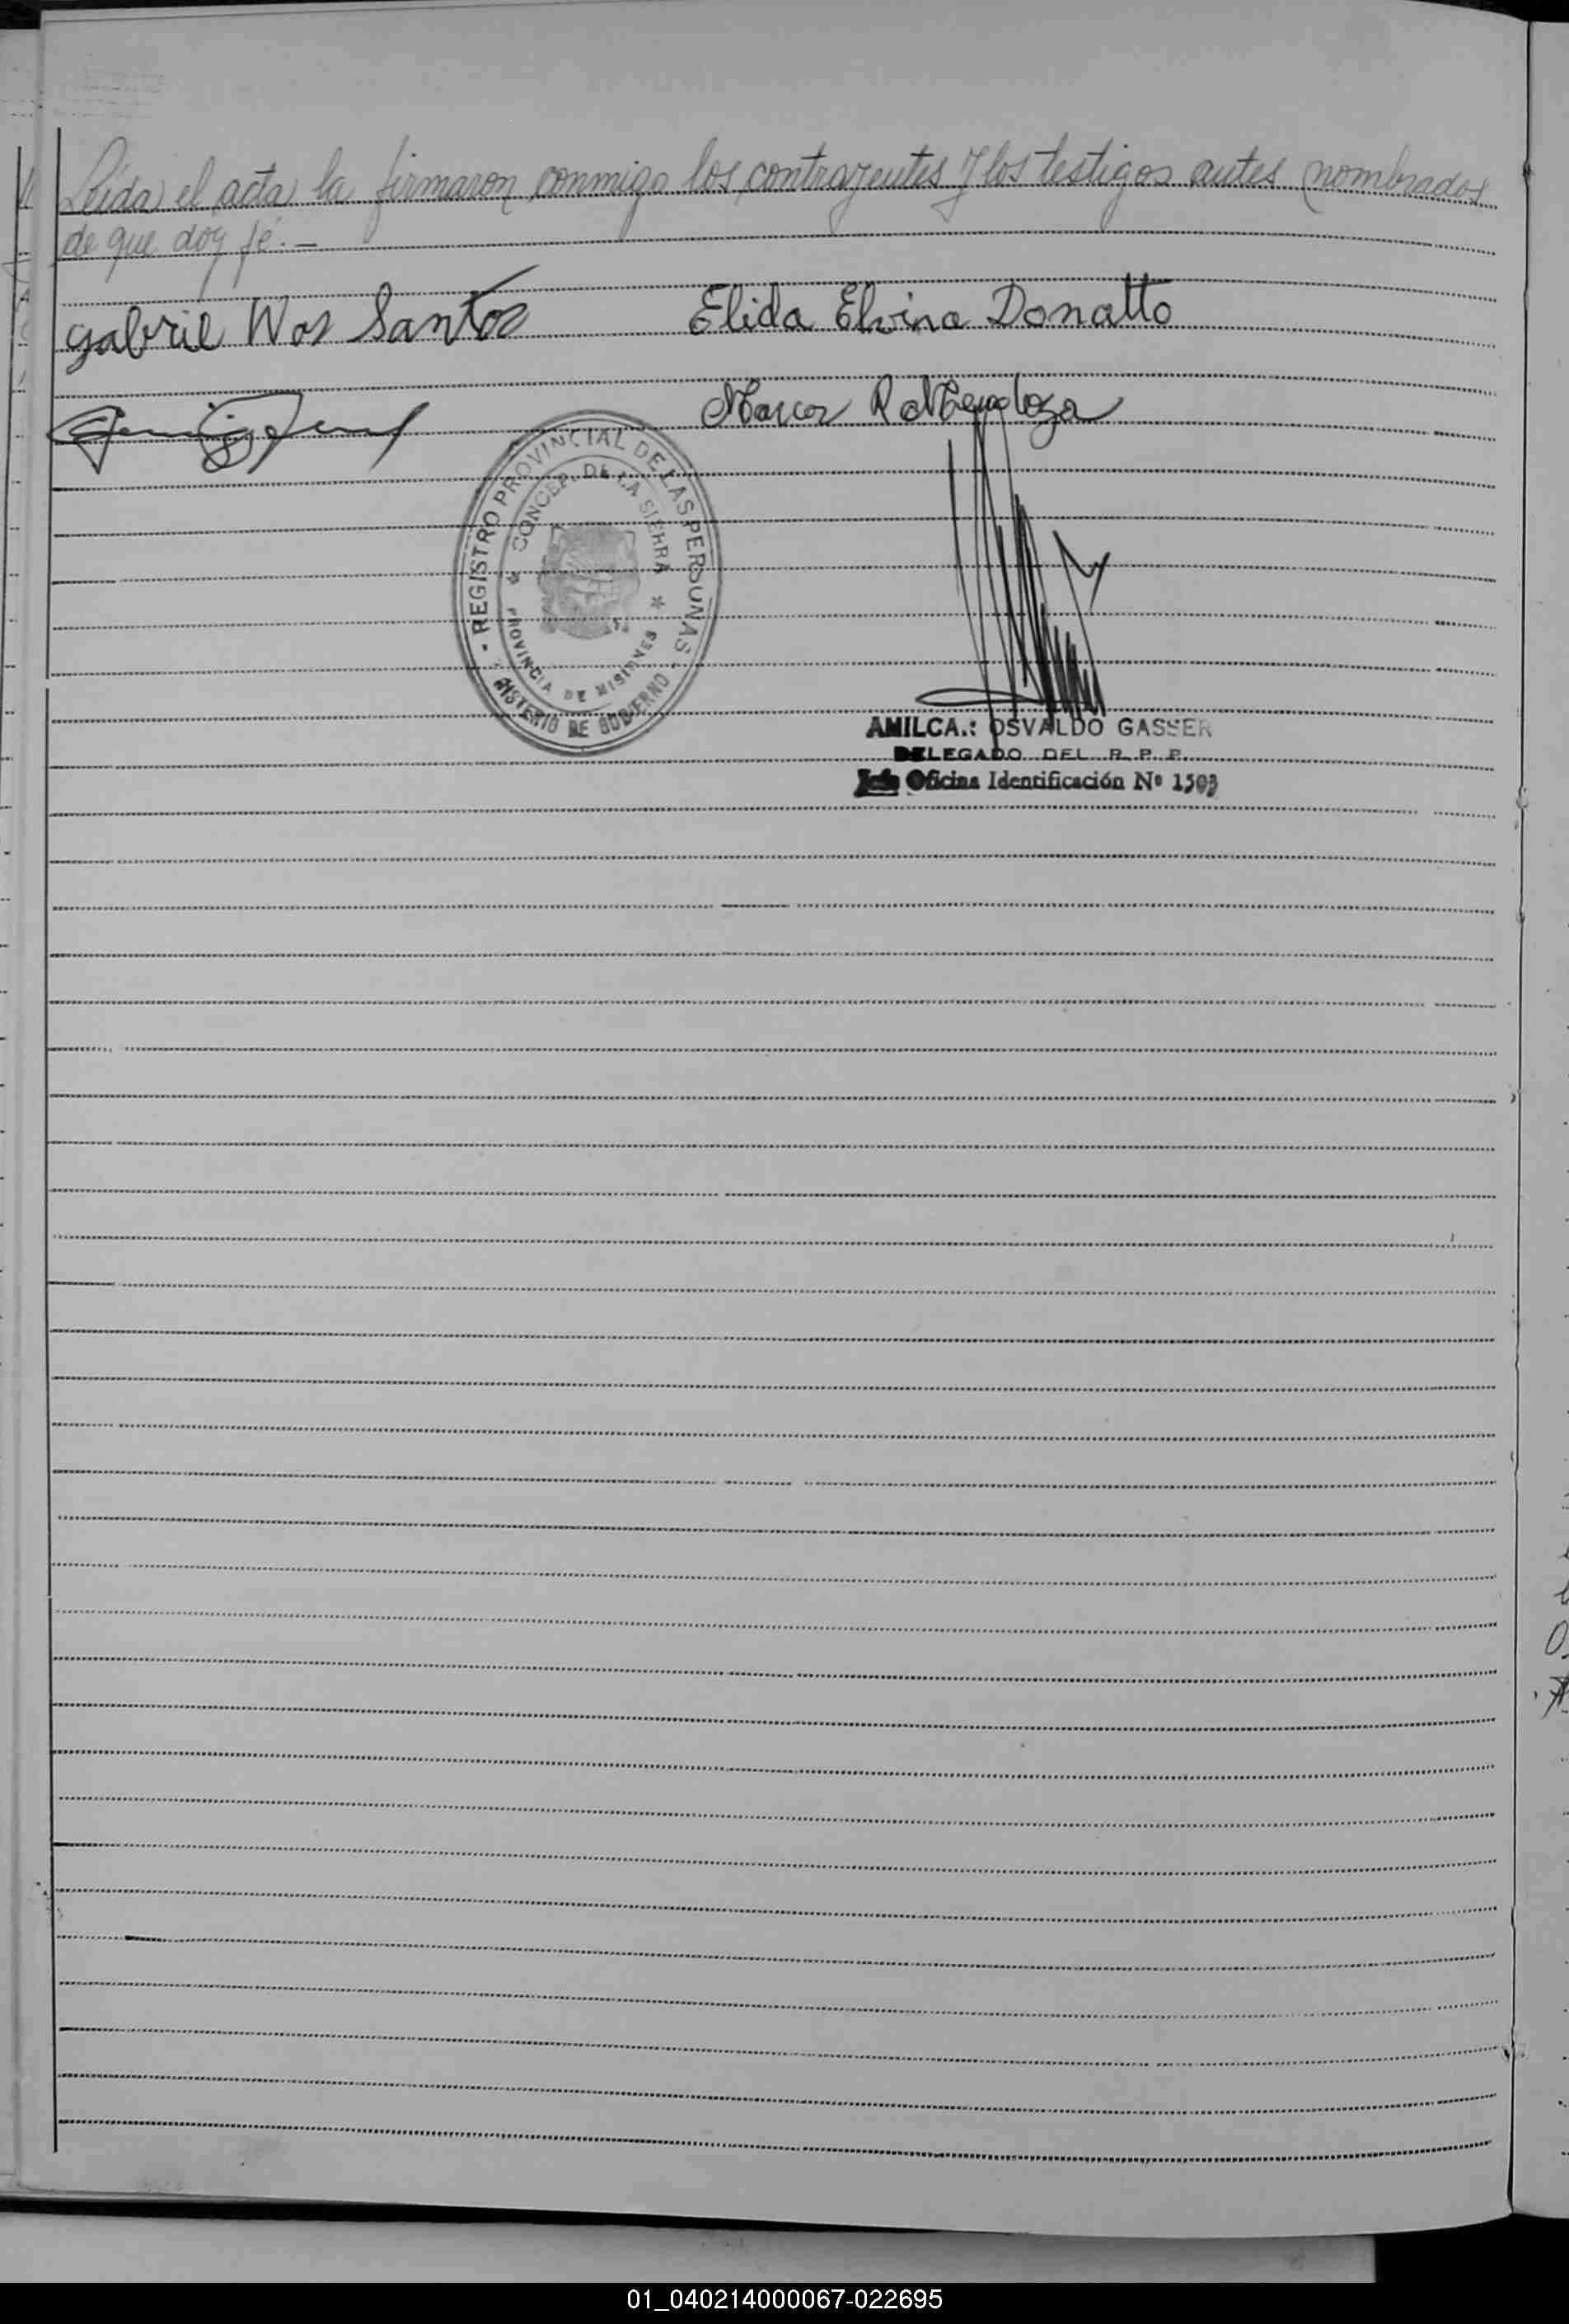 Leida el acta la firmaron conmigo los contrayentes y los testigos antes nombrados
de que doy fé.—
Gabriel Dos Santos Elida Elvira Donatto
Marcos R. Mendoza
- REGISTRO PROVINCIAL DE LAS PERSONAS -
* CONCEP. DE LA SIERRA *
PROVINCIA DE MISIONES
NISTERIO DE GOBIERNO
AMILCA.: OSVALDO GASSER
DELEGADO DEL R. P. P.
Jefe Oficina Identificación Nº 1503
01_040214000067-022695